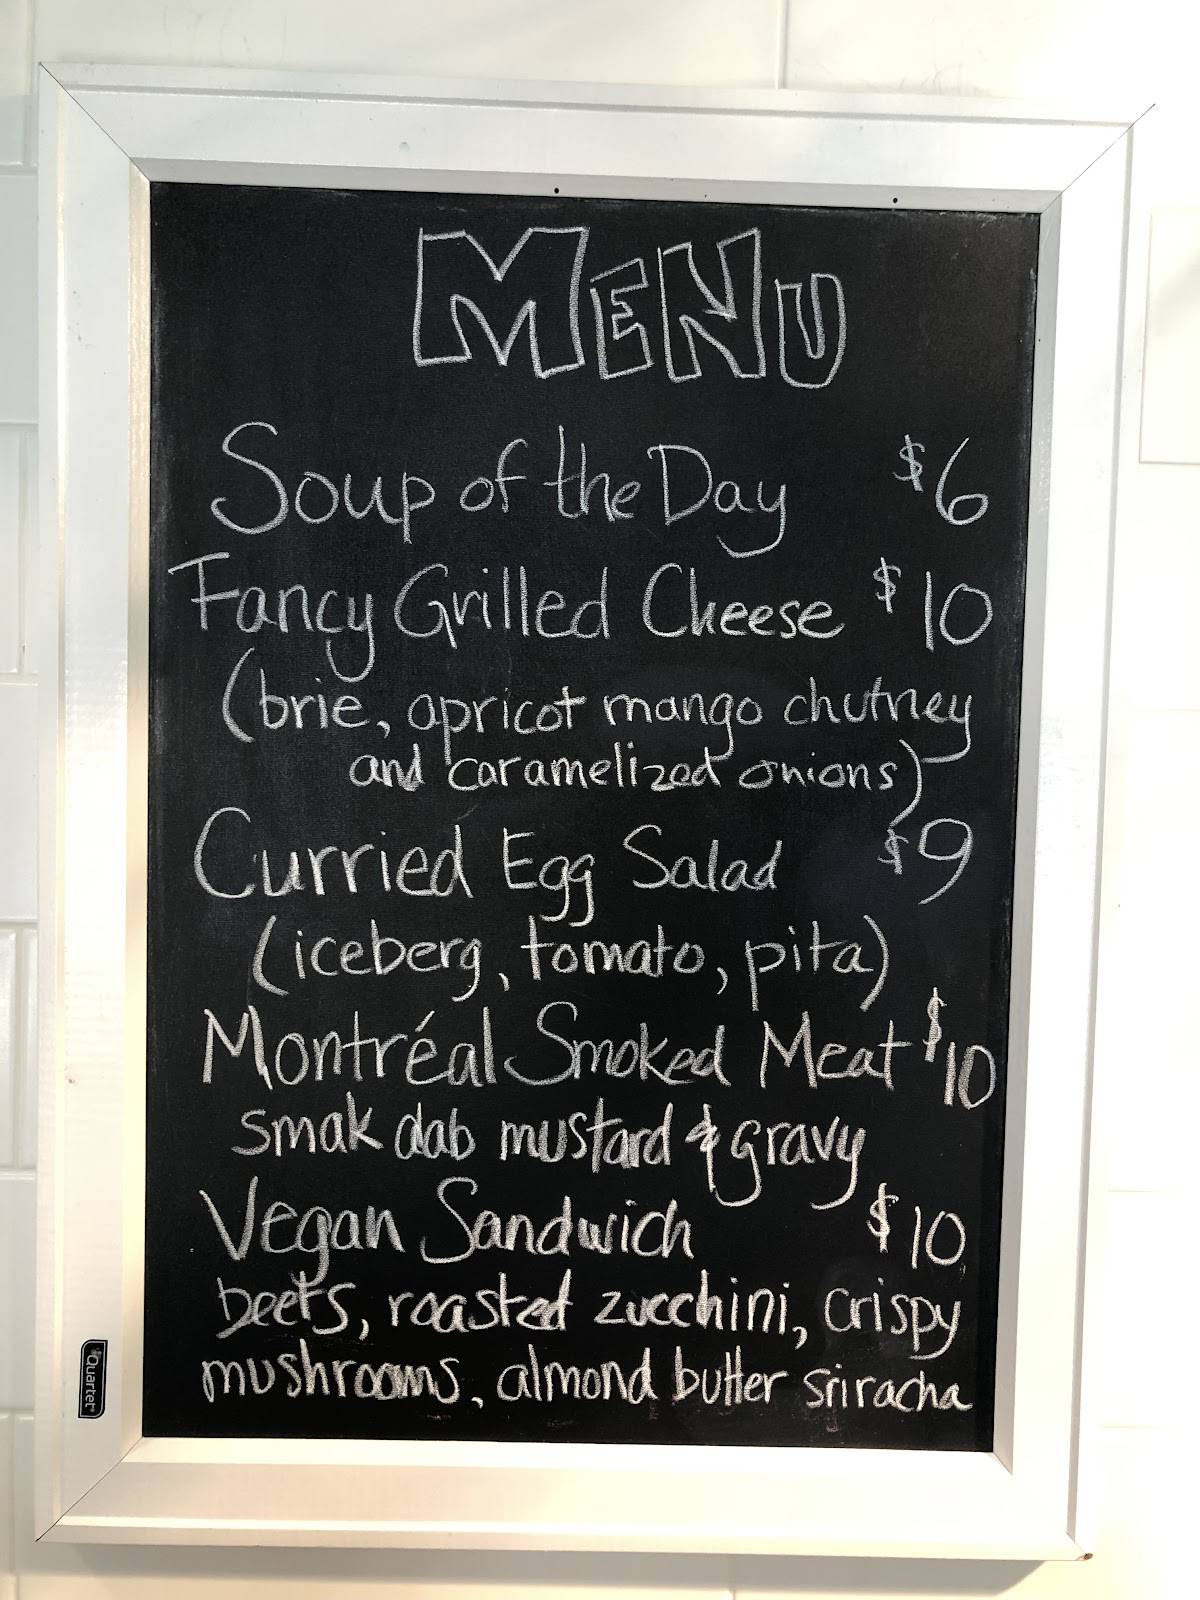 MENU
Soup of the Day $6
Fancy Grilled Cheese $10
(brie, apricot mango chutney
and caramelized onions)
Curried Egg Salad $9
(iceberg, tomato, pita)
Montréal Smoked Meat $10
smak dab mustard & gravy
Vegan Sandwich $10
beets, roasted zucchini, crispy
mushrooms, almond butter sriracha
Quartet